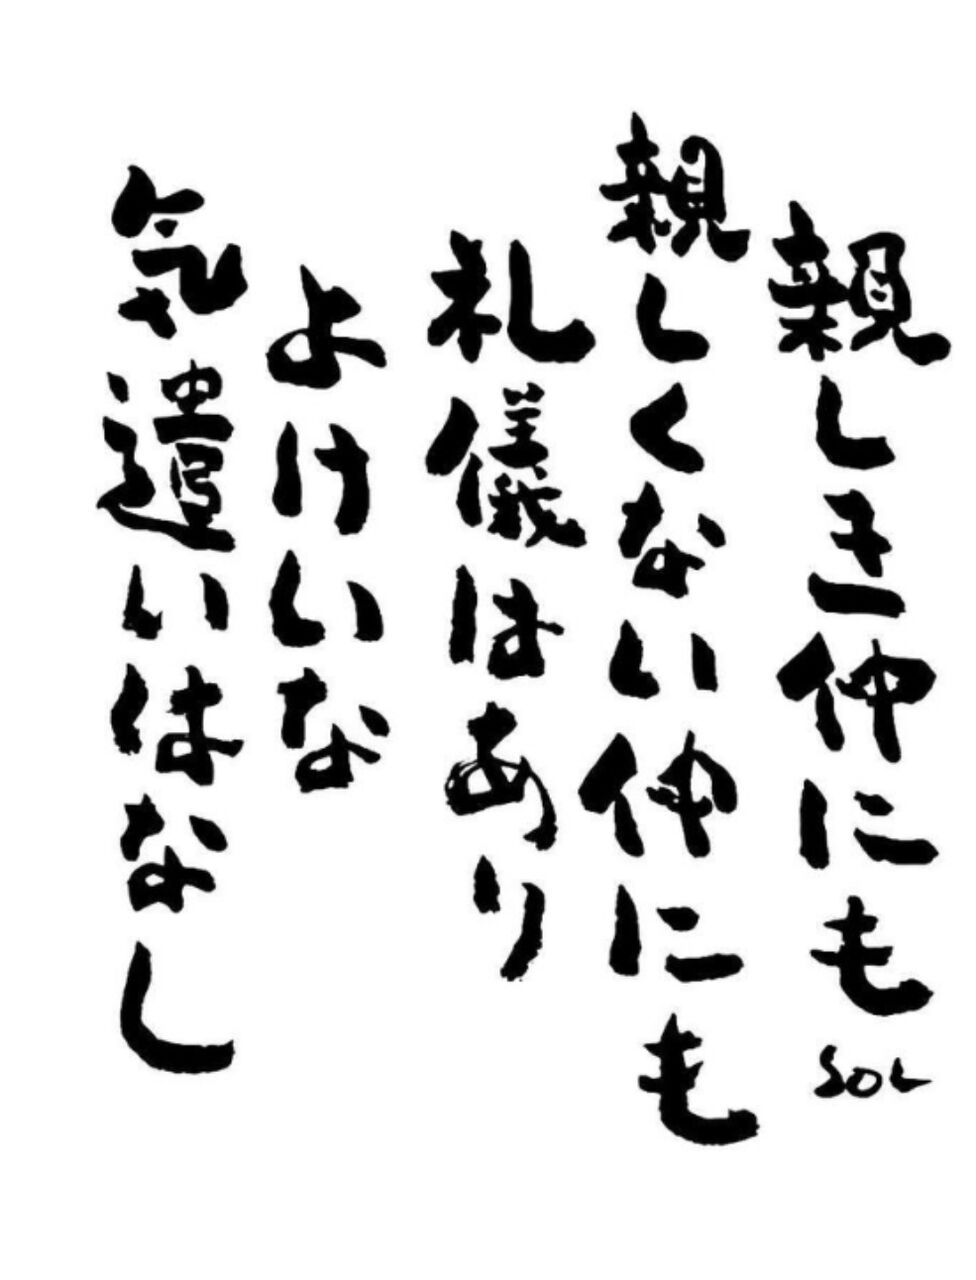 親しき仲にも
SOL
親しくない仲にも
礼儀はあり
よけいな
気遣いはなし